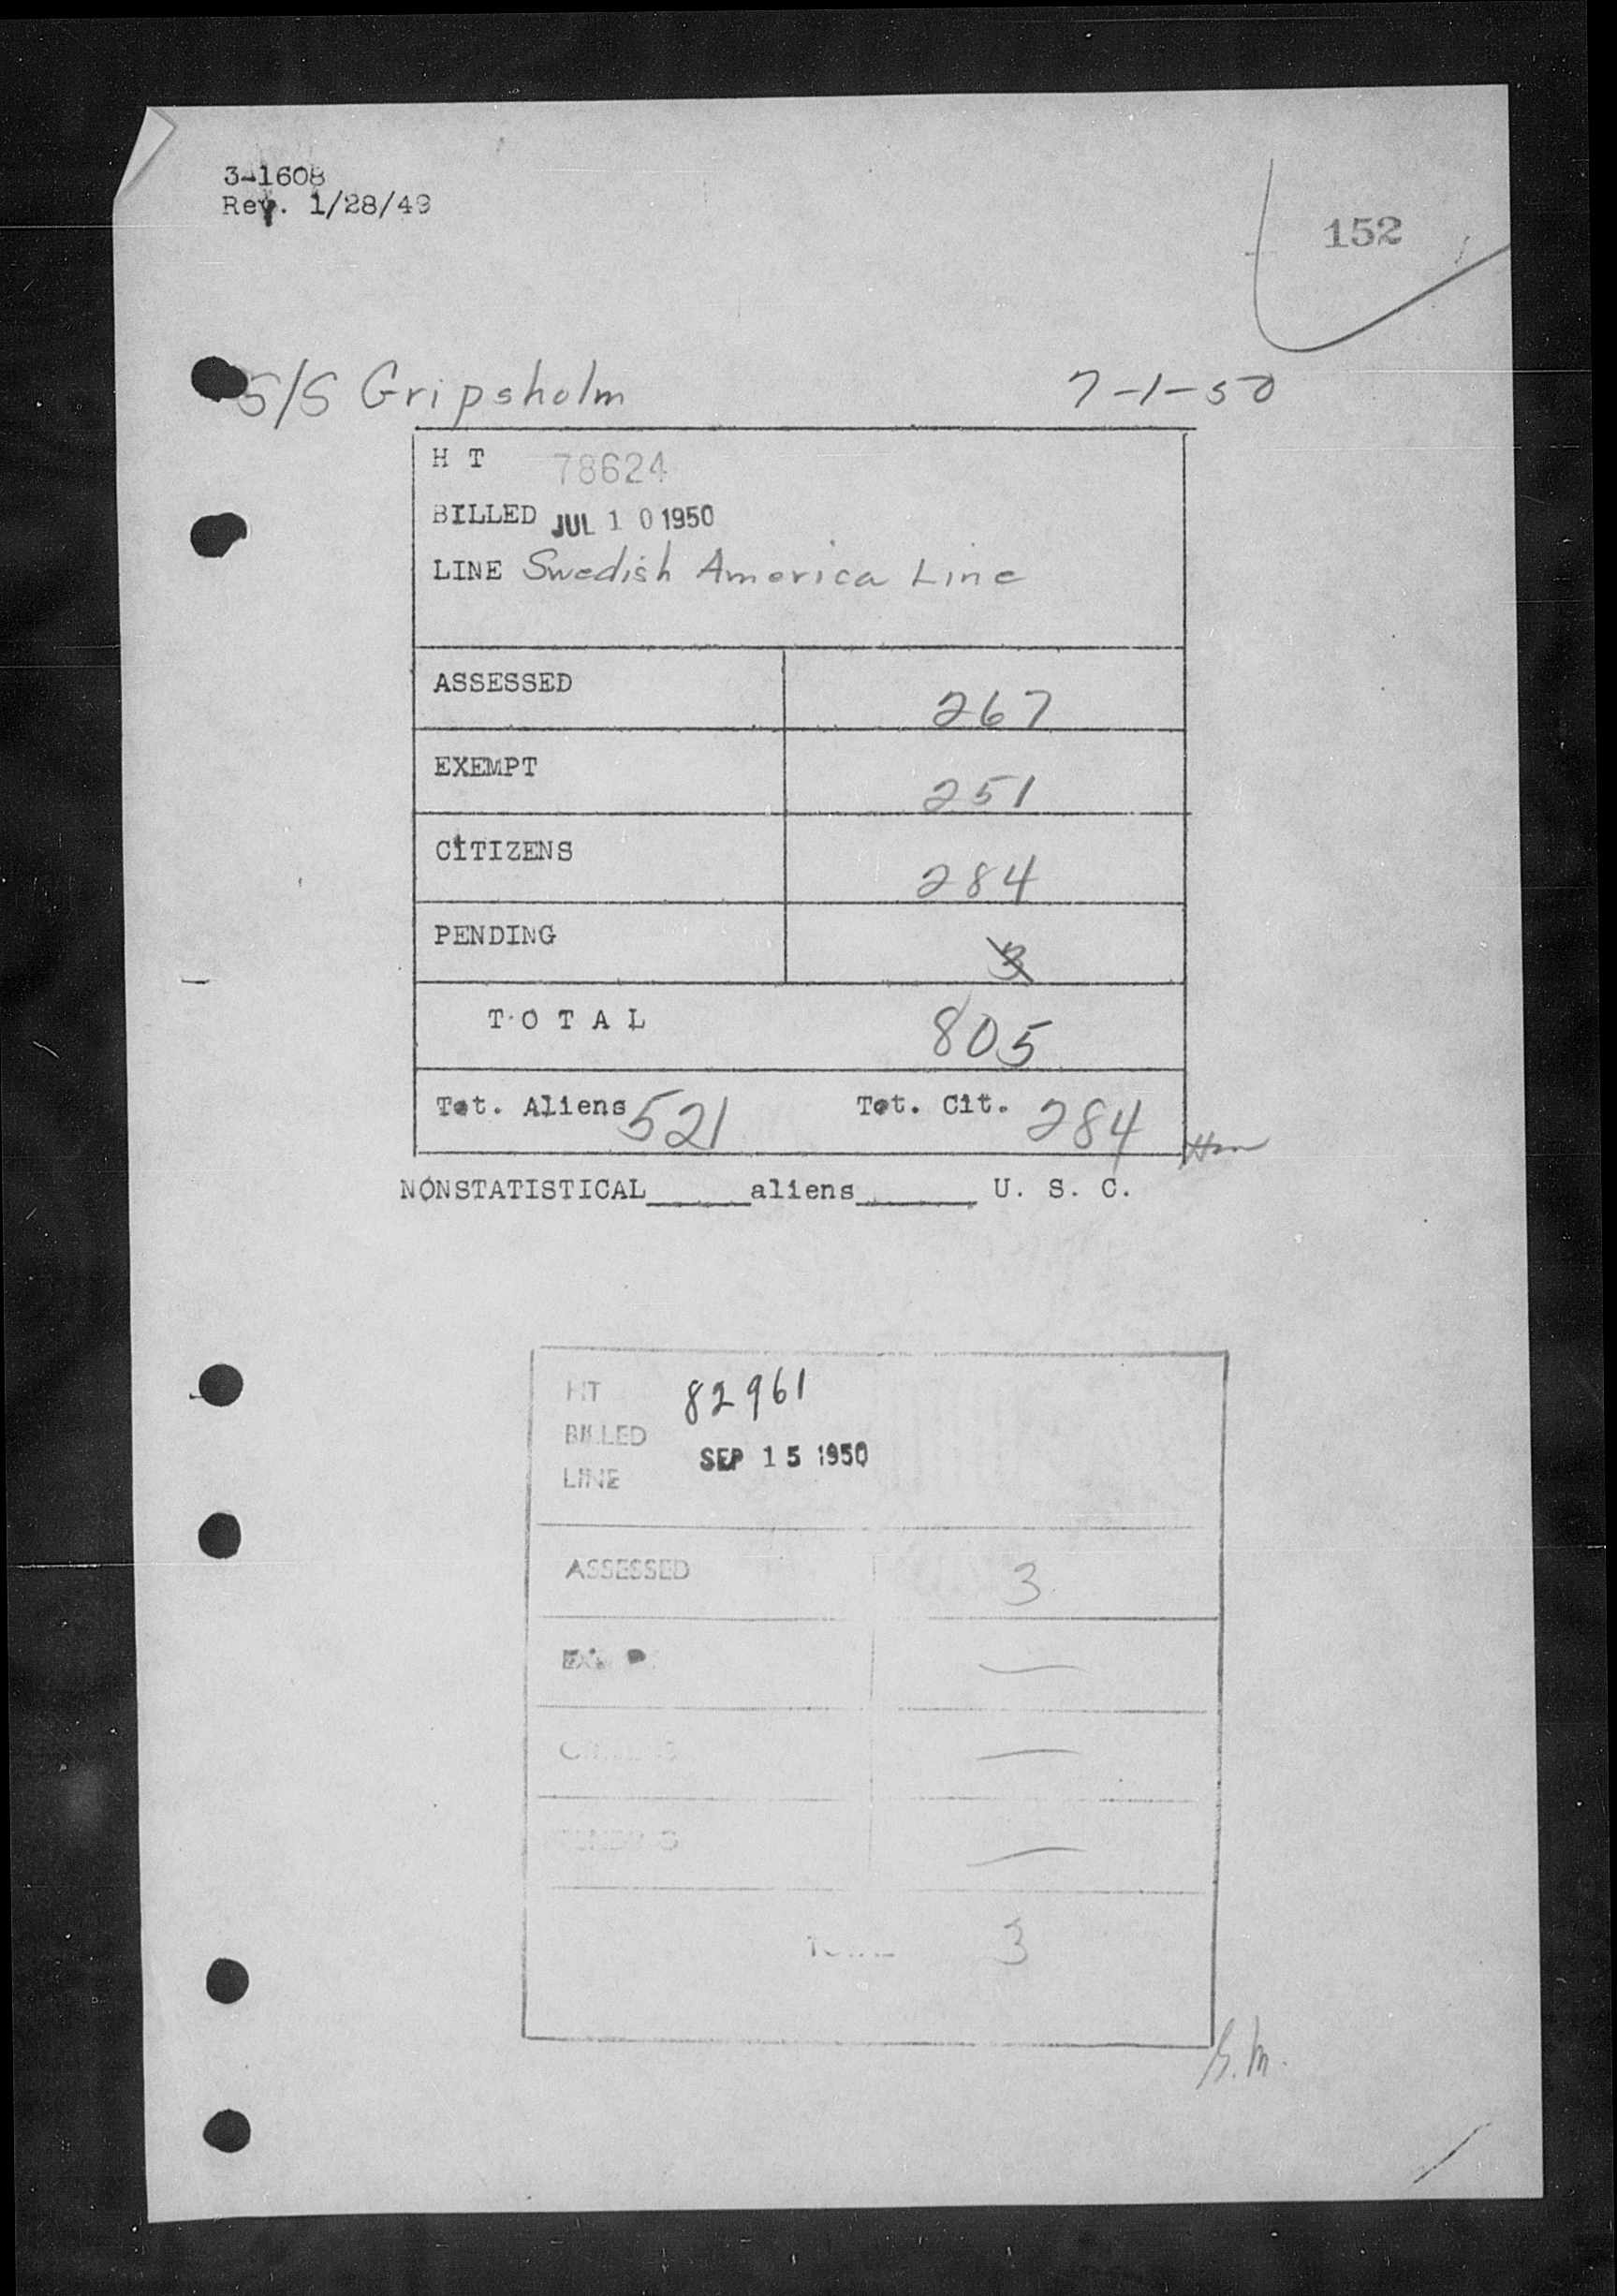 3-1608
Rev. 1/28/49
152
S/S Gripsholm 7-1-50
H T 78624
BILLED JUL 10 1950
LINE Swedish America Line
ASSESSED 267
EXEMPT 251
CITIZENS 284
PENDING 3
T O T A L 805
Tot. Aliens 521 Tot. Cit. 284
NONSTATISTICAL______aliens_______ U. S. C.
HT 82961
BILLED SEP 15 1950
LINE
ASSESSED 3
TOTAL 3